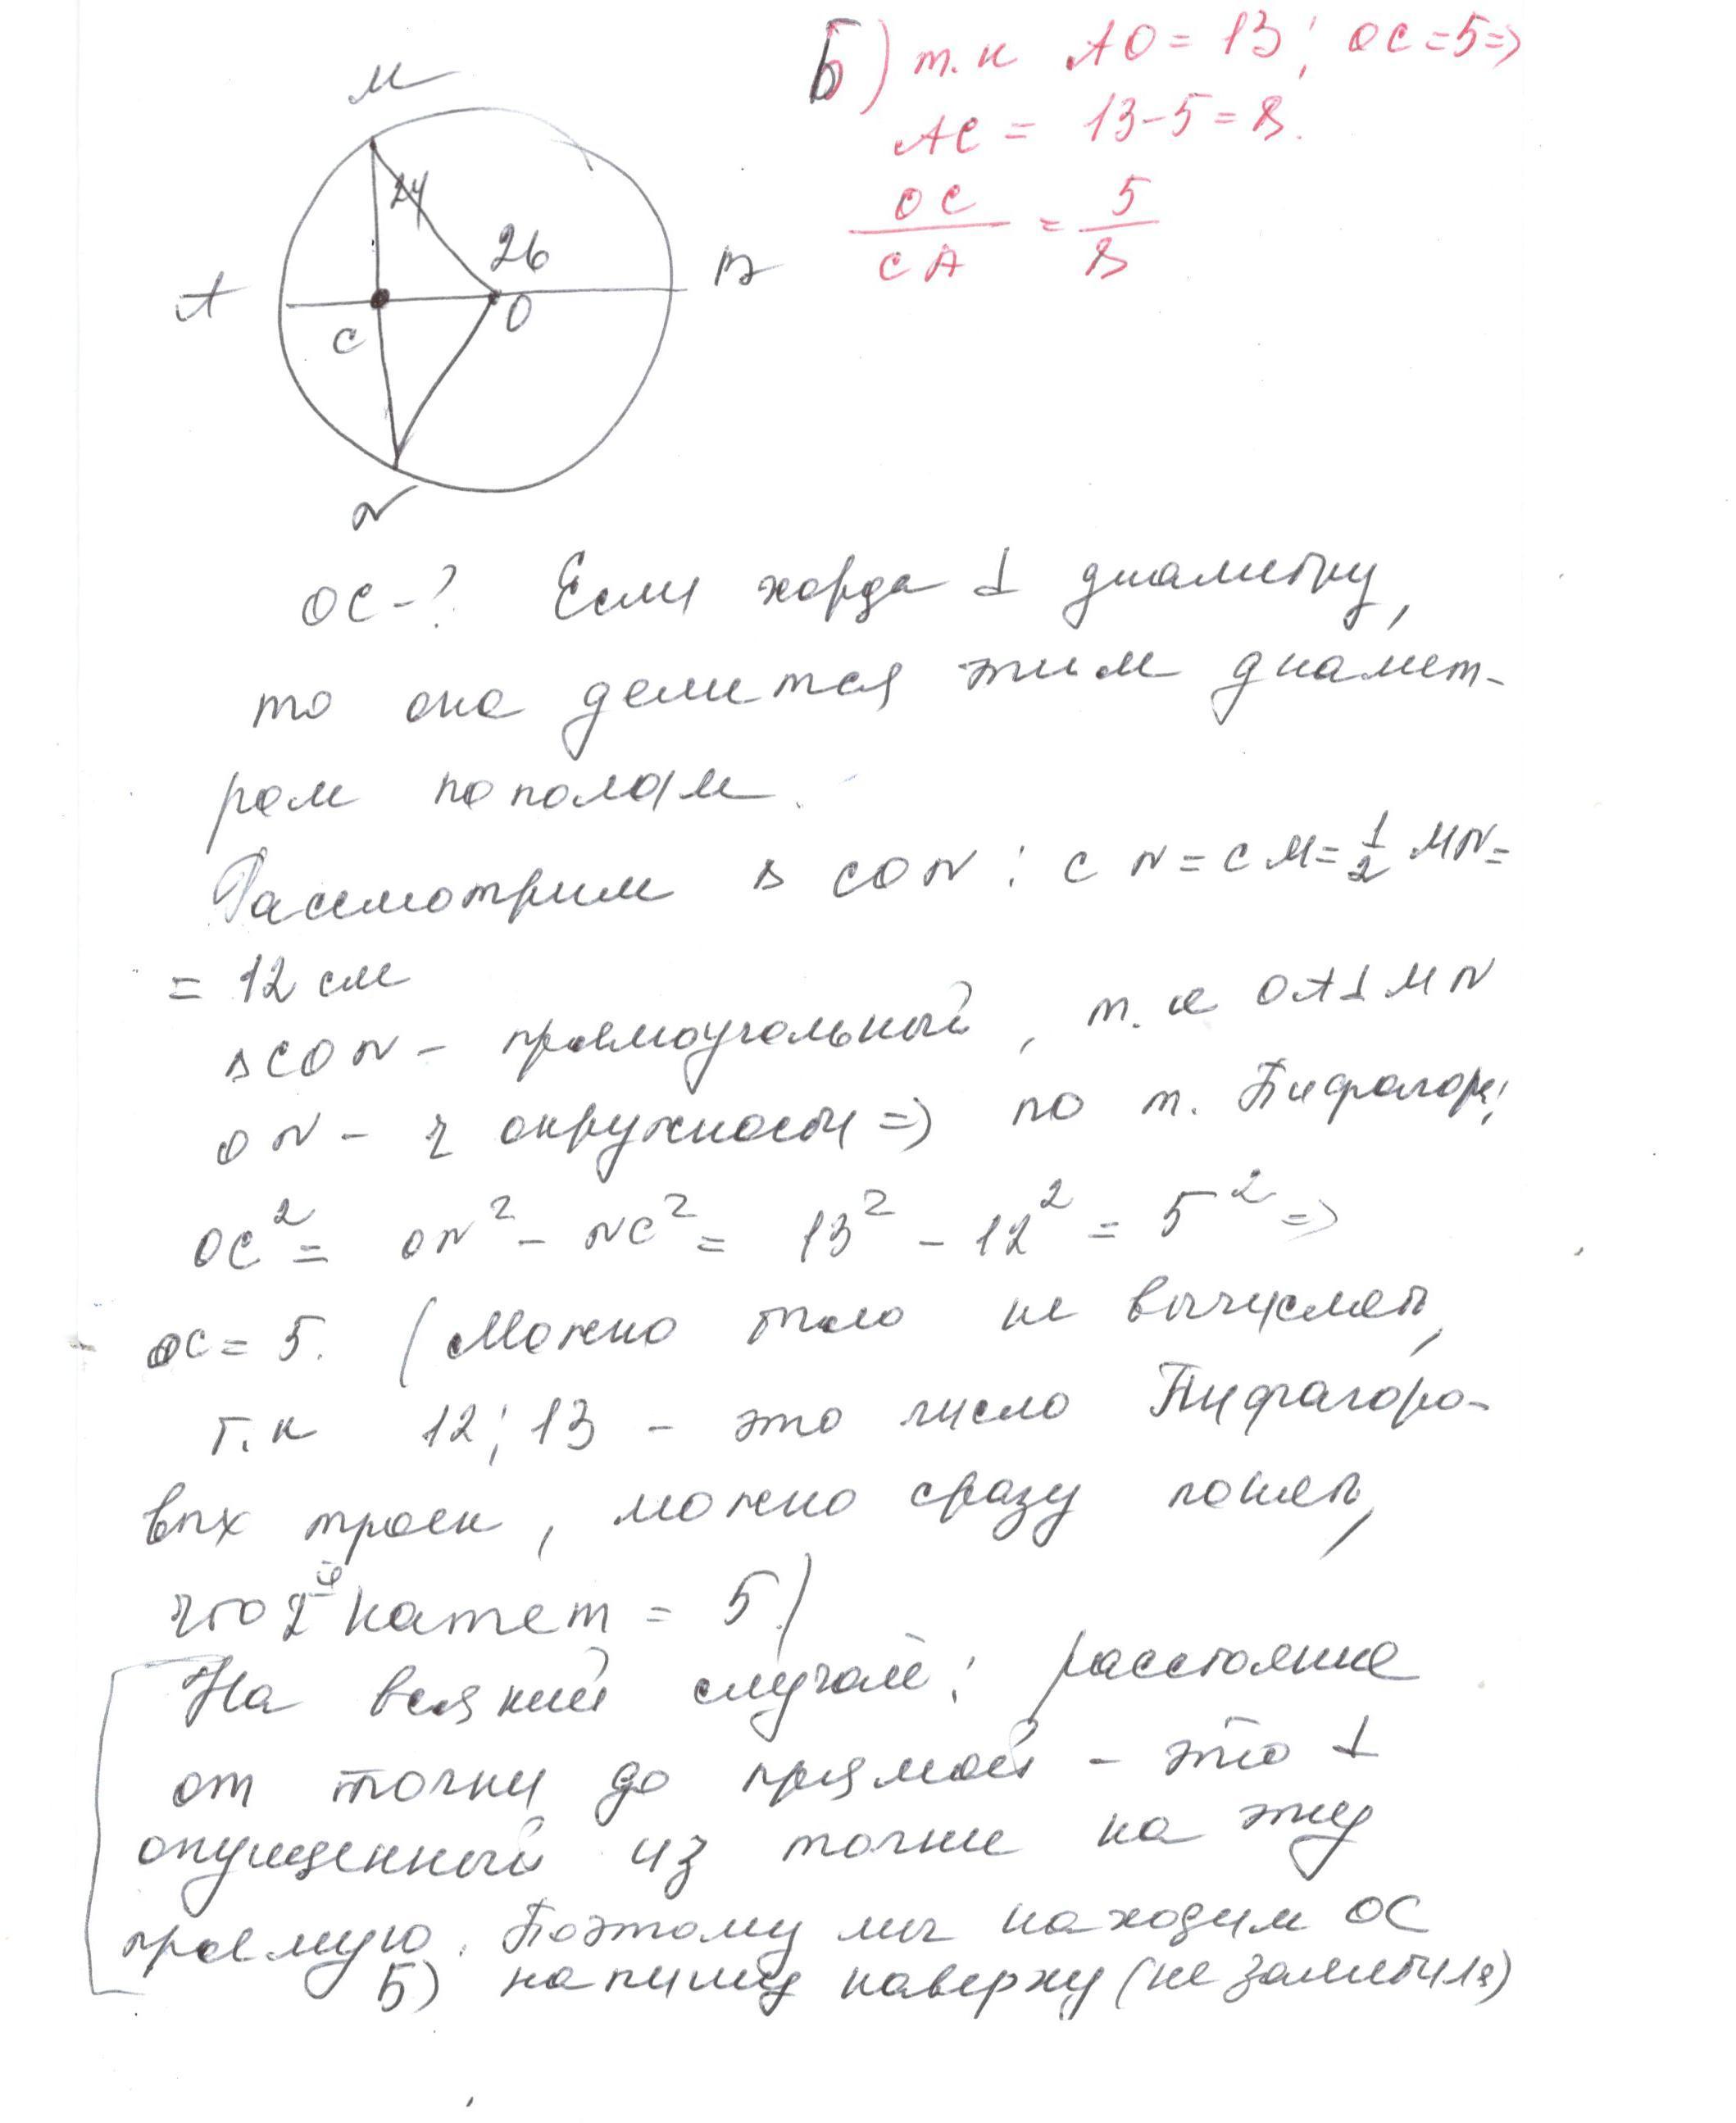 Б) т.к АО = 13; ОС = 5 =>
АС = 13-5 = 8.
ОС/СА = 5/8
М
24
26
А
В
С
О
N
ОС-? Если хорда ⊥ диаметру,
то она делится этим диамет-
ром пополам.
Рассмотрим Δ CON: CN = CM = 1/2 MN =
= 12 см
ΔCON - прямоугольный, т.к ОА⊥MN
ON - r окружности => по т. Пифагора:
OC² = ON² - NC² = 13² - 12² = 5² =>
OC = 5. (Можно было не вычислять,
т.к 12; 13 - это число Пифагоро-
вых троек, можно сразу понять,
что 2й катет = 5)
На всякий случай: расстояние
от точки до прямой - это ⊥
опущенный из точки на эту
прямую. Поэтому мы находим ОС
Б) напишу наверху (не заметила)